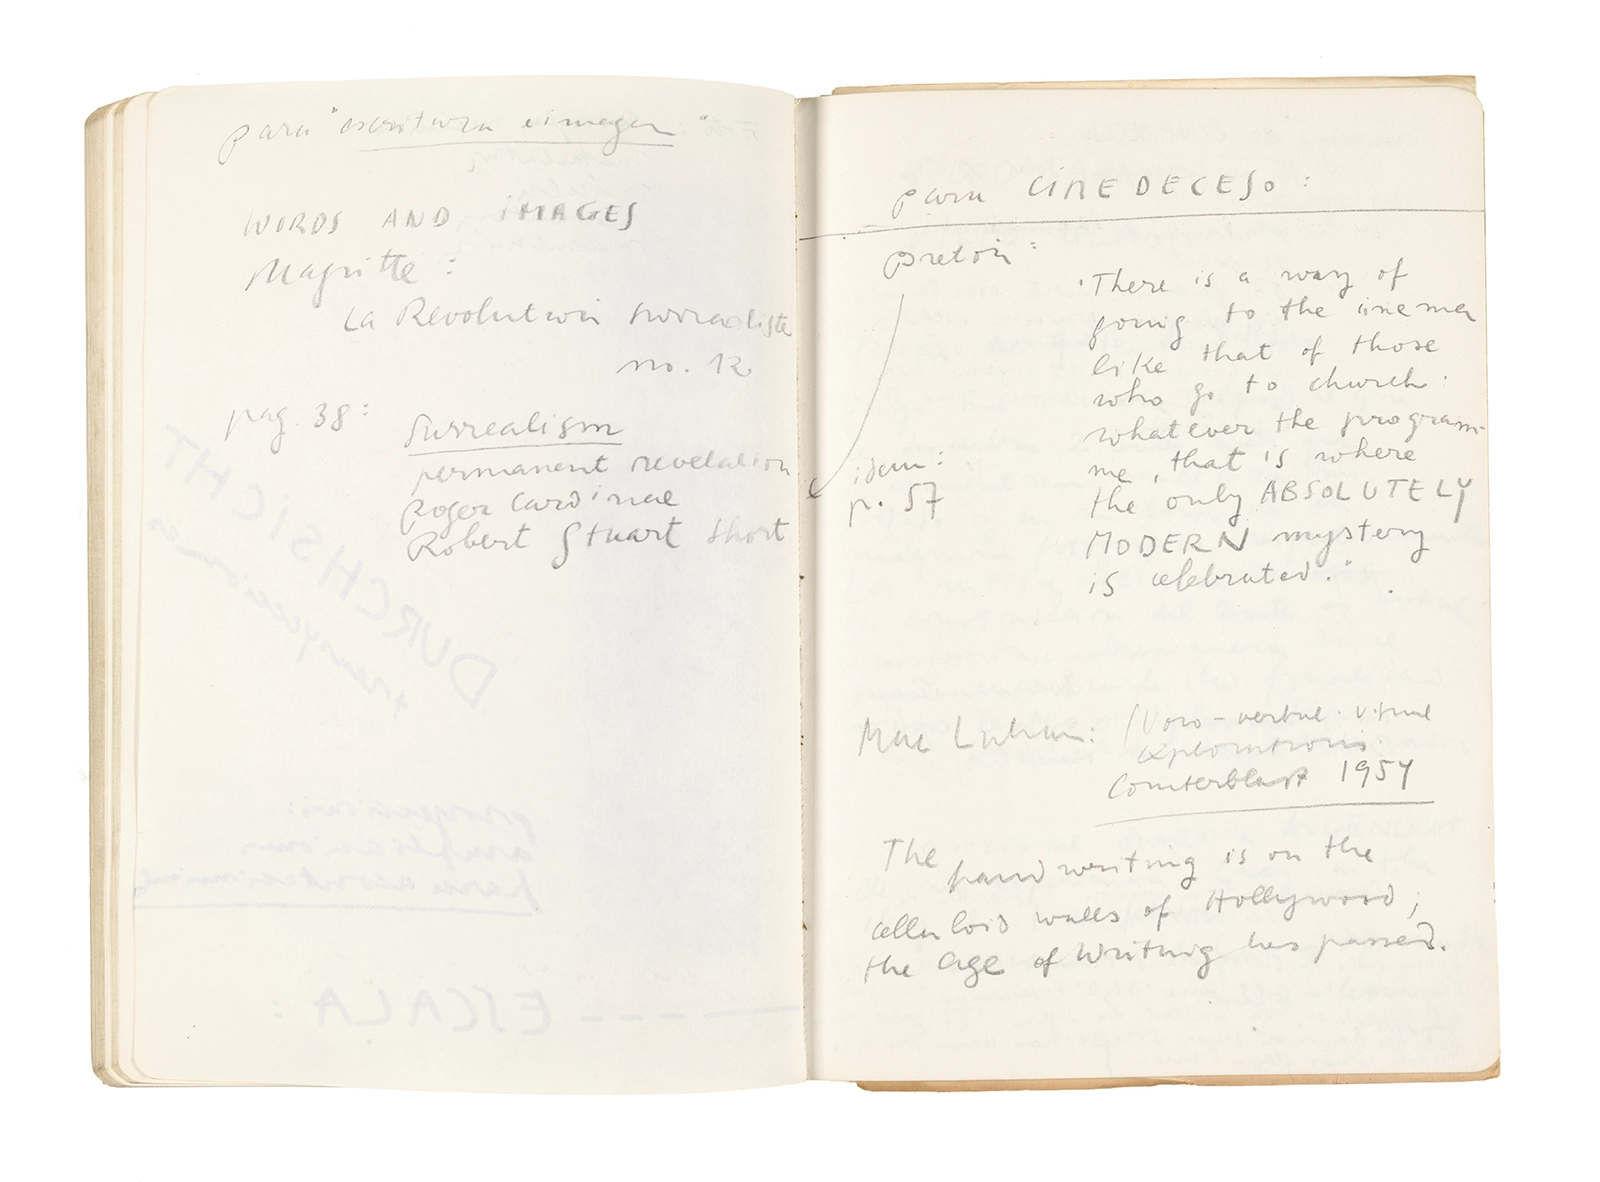 para "escritura e imagen"
WORDS AND IMAGES
Magritte :
La Revolution surrealiste
no. 12
pag. 38 :
Surrealism
permanent revelation
Roger Cardinal
Robert Stuart Short
DURCHSICHT
proyecciones:
ampliaciones
ESCALA :
para CINE DECESO :
Breton :
"There is a way of
going to the cinema
like that of those
who go to church :
whatever the program-
me, that is where
idem :
p. 57
the only ABSOLUTELY
MODERN mystery
is celebrated."
Mac Luhan : Voco-verbal-visual
explorations
Counterblast 1954
The handwriting is on the
celluloid walls of Hollywood ;
the Age of Writing has passed.